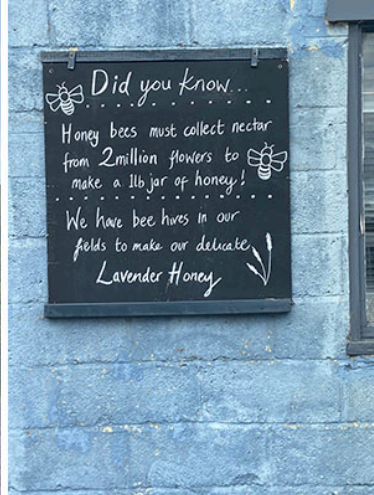 Did you know...
Honey bees must collect nectar
from 2million flowers to
make a 1lb jar of honey!
We have bee hives in our
fields to make our delicate
Lavender Honey